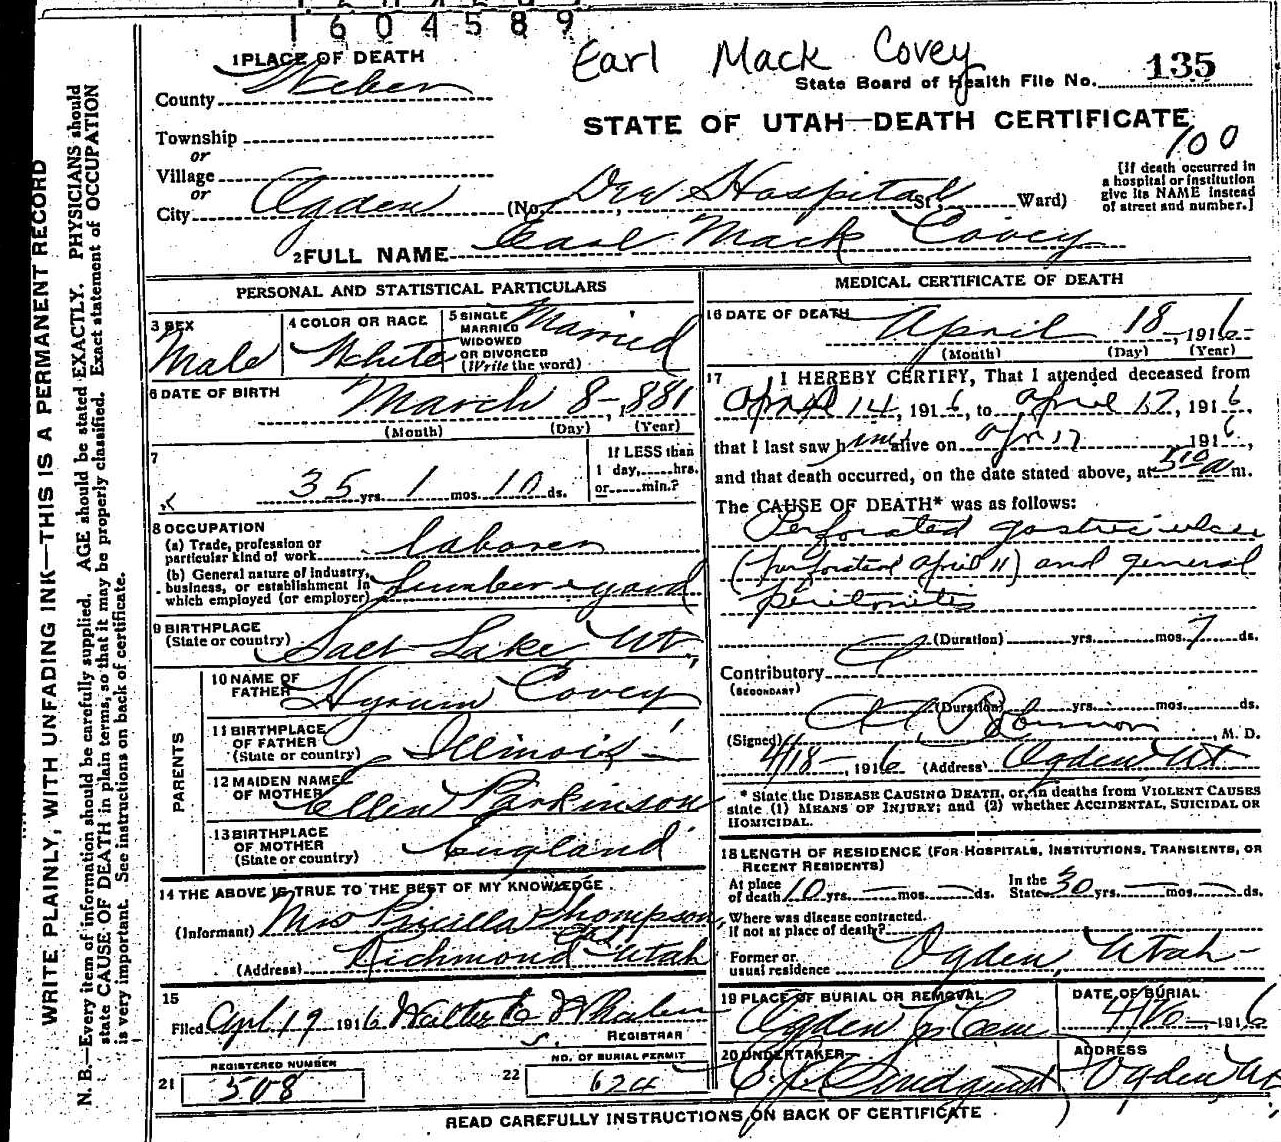 1604589
Earl Mack Covey
State Board of Health File No. 135
STATE OF UTAH—DEATH CERTIFICATE
100
1 PLACE OF DEATH
County Weber
Township
or
Village
or
City Ogden (No. Dee Hospital St. Ward)
[If death occurred in
a hospital or institution
give its NAME instead
of street and number.]
2 FULL NAME Earl Mack Covey
PERSONAL AND STATISTICAL PARTICULARS
3 SEX
Male
4 COLOR OR RACE
White
5 SINGLE
MARRIED
WIDOWED
OR DIVORCED
(Write the word)
Married
6 DATE OF BIRTH
March 8-, 1881
(Month) (Day) (Year)
7
35 yrs. 1 mos. 10 ds.
If LESS than
1 day, hrs.
or min.?
8 OCCUPATION
(a) Trade, profession or
particular kind of work laborer
(b) General nature of industry,
business, or establishment in
which employed (or employer) Lumber-yard
9 BIRTHPLACE
(State or country) Salt Lake, Ut.,
PARENTS
10 NAME OF
FATHER Hyrum Covey
11 BIRTHPLACE
OF FATHER
(State or country) Illinois
12 MAIDEN NAME
OF MOTHER Ellen Parkinson
13 BIRTHPLACE
OF MOTHER
(State or country) England
14 THE ABOVE IS TRUE TO THE BEST OF MY KNOWLEDGE
(Informant) Mrs Priscilla Thompson,
(Address) Richmond Utah
15
Filed Apl 19 1916 Walter E Whalen
REGISTRAR
REGISTERED NUMBER
21 508
NO. OF BURIAL PERMIT
22 624
MEDICAL CERTIFICATE OF DEATH
16 DATE OF DEATH
April 18, 1916
(Month) (Day) (Year)
17 I HEREBY CERTIFY, That I attended deceased from
April 14, 1916, to April 17, 1916,
that I last saw him alive on Apr 17 1916,
and that death occurred, on the date stated above, at 5 10 a m.
The CAUSE OF DEATH* was as follows:
Perforated gastric ulcer
(perforated April 11) and general
peritonitis
(Duration) yrs. mos. 7 ds.
Contributory
(SECONDARY)
(Duration) yrs. mos. ds.
(Signed) Robinson, M. D.
4/18-, 1916 (Address) Ogden Ut
* State the DISEASE CAUSING DEATH, or, in deaths from VIOLENT CAUSES
state (1) MEANS OF INJURY; and (2) whether ACCIDENTAL, SUICIDAL OR
HOMICIDAL.
18 LENGTH OF RESIDENCE (FOR HOSPITALS, INSTITUTIONS, TRANSIENTS, OR
RECENT RESIDENTS)
At place
of death 10 yrs. mos. ds. In the
State 30 yrs. mos. ds.
Where was disease contracted.
if not at place of death?
Former or
usual residence Ogden, Utah
19 PLACE OF BURIAL OR REMOVAL
Ogden
DATE OF BURIAL
1916
20 UNDERTAKER
ADDRESS
Ogden
READ CAREFULLY INSTRUCTIONS ON BACK OF CERTIFICATE
WRITE PLAINLY, WITH UNFADING INK—THIS IS A PERMANENT RECORD
N. B.—Every item of information should be carefully supplied. AGE should be stated EXACTLY. PHYSICIANS should
state CAUSE OF DEATH in plain terms, so that it may be properly classified. Exact statement of OCCUPATION
is very important. See instructions on back of certificate.